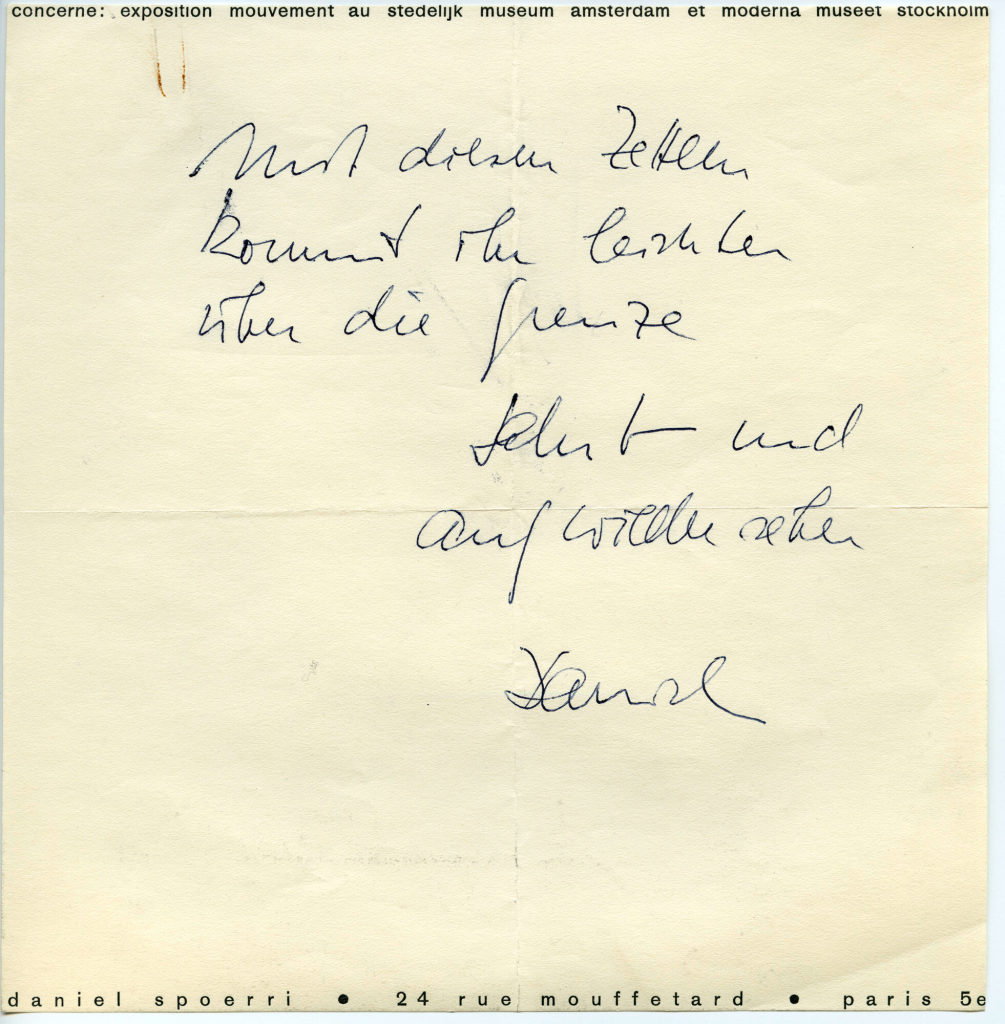 concerne: exposition mouvement au stedelijk museum amsterdam et moderna museet stockholm
Mit diesen Zetteln
kommt ihr leichter
über die Grenze
und
auf wiedersehen
Daniel
daniel spoerri ● 24 rue mouffetard ● paris 5e